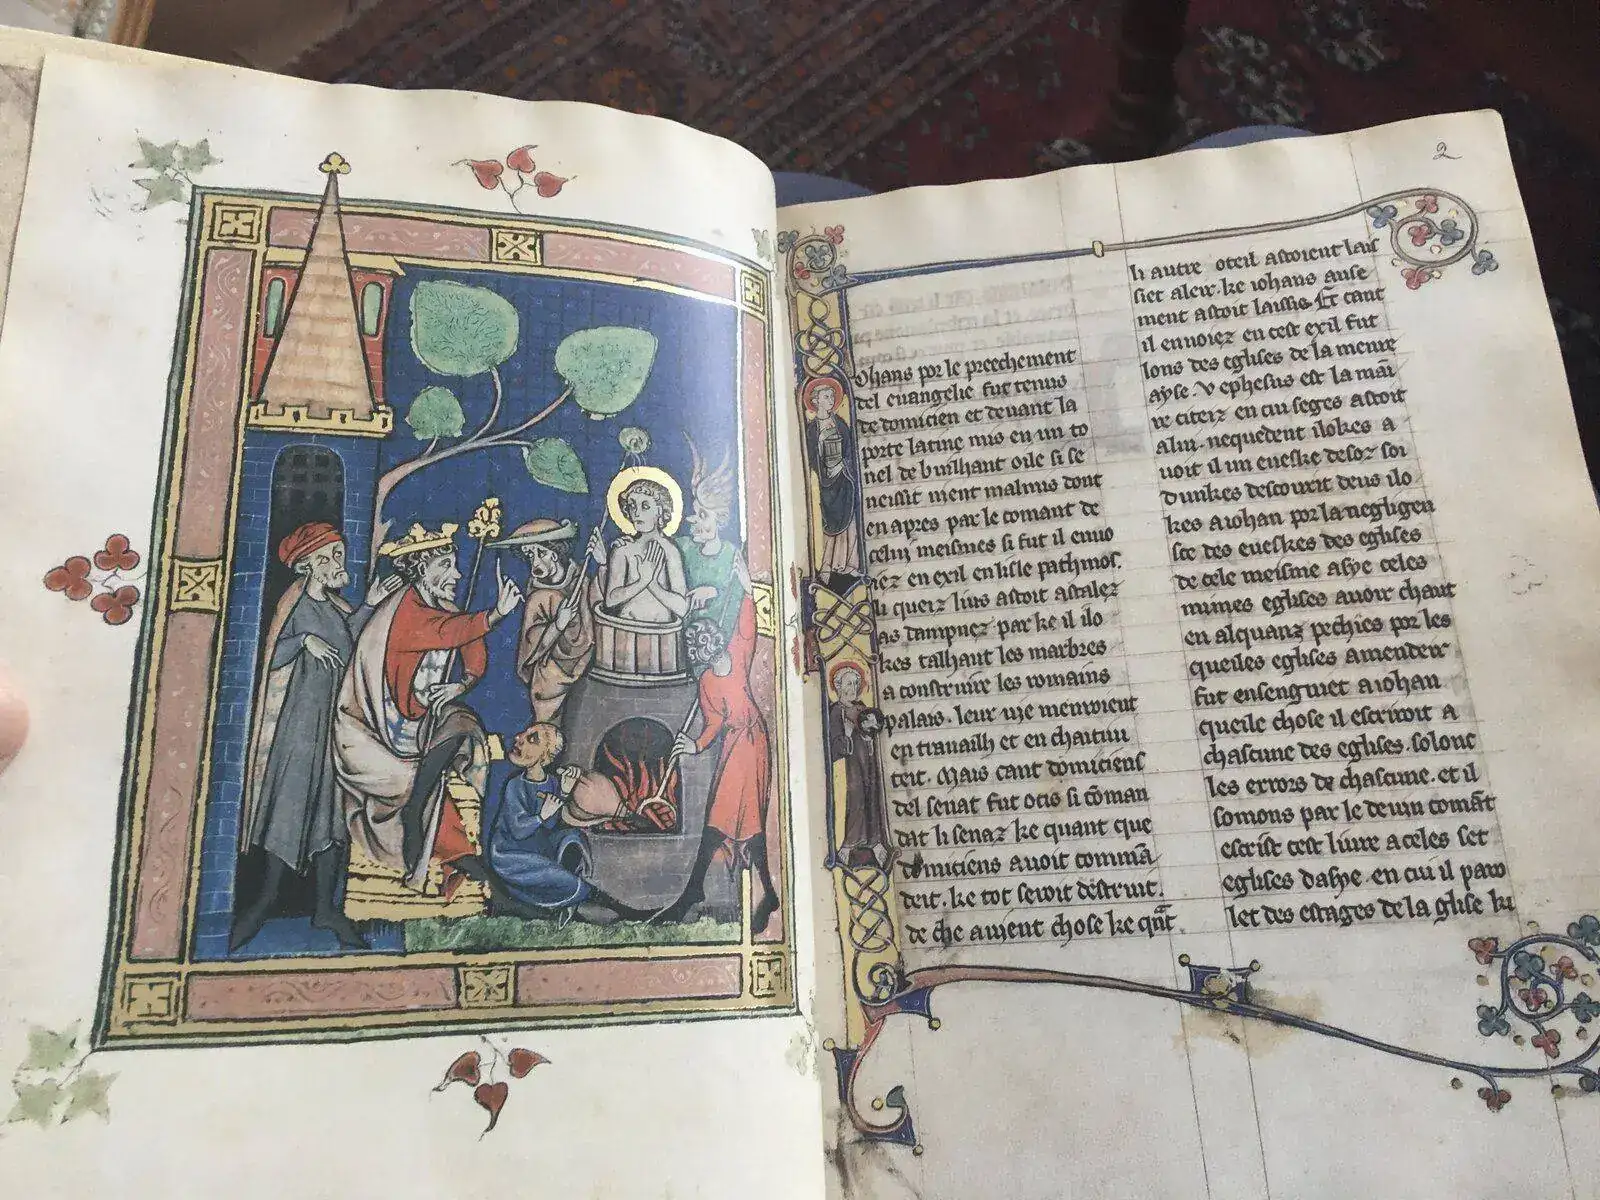 2
Ohans por le preechement
del euangelie fut tenus
de domicien et deuant la
porte latine mis en un to
nel de builhant oile si se
neissit nient malmis dont
en apres par le comant de
celui meismes si fut il enuo
iez en exil en lisle pathmos.
li queiz luis astoit astalez
as dampnez par ke il ilo
kes talhant les marbres
a construire les romains
palais. leur uie menroient
en trauailh et en chaitiu
teit. Mais cant domiciens
del senat fut ocis si cōman
dat li senaz ke quant que
domiciens auoit commā
deit. ke tot seroit destruit.
de che auient chose ke qnt
li autre oteil astoient lais
siet aleir. ke iohans ause
ment astoit laissis. Et cant
il enuoiez en cest exil fut
lons des eglises de la menre
ayse. V ephesus est la mai
re citeiz en cui seges astoit
a lui. nequedent ilokes a
uoit il un eueske desoz soi
Dunkes descourit deus ilo
kes a iohan por la negligen
ce des eueskes des eglises
de cele meisme asye celes
mimes eglises auoir chaut
en alquanz pechies por les
queiles eglises amendeir
fut ensengniet a iohan
queile chose il escriroit a
chascune des eglises. solonc
les errors de chascune. et il
somons par le deuin comāt
escrist cest liure a celes set
eglises dasye. en cui il paro
let des estages de la glise ki